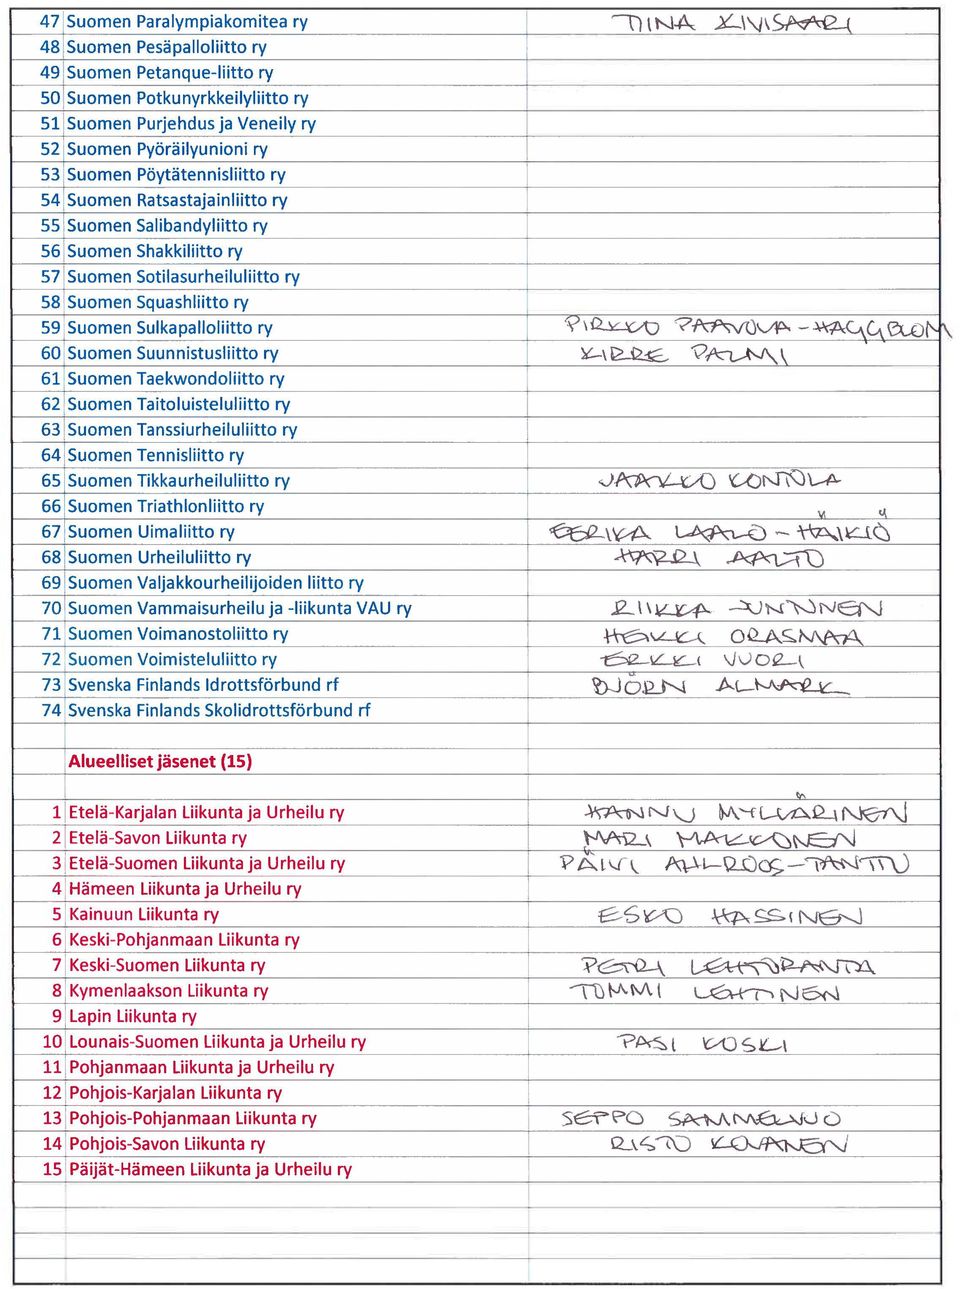 47 Suomen Paralympiakomitea ry TIINA KIVISAARI
48 Suomen Pesäpalloliitto ry
49 Suomen Petanque-liitto ry
50 Suomen Potkunyrkkeilyliitto ry
51 Suomen Purjehdus ja Veneily ry
52 Suomen Pyöräilyunioni ry
53 Suomen Pöytätennisliitto ry
54 Suomen Ratsastajainliitto ry
55 Suomen Salibandyliitto ry
56 Suomen Shakkiliitto ry
57 Suomen Sotilasurheiluliitto ry
58 Suomen Squashliitto ry
59 Suomen Sulkapalloliitto ry PIRKKO PAAVOLA-HÄGGBLOM
60 Suomen Suunnistusliitto ry KIRRE PALMI
61 Suomen Taekwondoliitto ry
62 Suomen Taitoluisteluliitto ry
63 Suomen Tanssiurheiluliitto ry
64 Suomen Tennisliitto ry
65 Suomen Tikkaurheiluliitto ry JAAKKO KONTOLA
66 Suomen Triathlonliitto ry
67 Suomen Uimaliitto ry EERIKA LAALO-HÄIKIÖ
68 Suomen Urheiluliitto ry HARRI AALTO
69 Suomen Valjakkourheilijoiden liitto ry
70 Suomen Vammaisurheilu ja -liikunta VAU ry RIIKKA JUNTUNEN
71 Suomen Voimanostoliitto ry HEIKKI ORASMAA
72 Suomen Voimisteluliitto ry ERKKI VUORI
73 Svenska Finlands Idrottsförbund rf BJÖRN ALMARK
74 Svenska Finlands Skolidrottsförbund rf
Alueelliset jäsenet (15)
1 Etelä-Karjalan Liikunta ja Urheilu ry HANNU MYLLÄRINEN
2 Etelä-Savon Liikunta ry MARI MAKKONEN
3 Etelä-Suomen Liikunta ja Urheilu ry PÄIVI AHLROOS-TANTTU
4 Hämeen Liikunta ja Urheilu ry
5 Kainuun Liikunta ry ESKO HASSINEN
6 Keski-Pohjanmaan Liikunta ry
7 Keski-Suomen Liikunta ry PETRI LEHTORANTA
8 Kymenlaakson Liikunta ry TOMMI LEHTINEN
9 Lapin Liikunta ry
10 Lounais-Suomen Liikunta ja Urheilu ry PASI KOSKI
11 Pohjanmaan Liikunta ja Urheilu ry
12 Pohjois-Karjalan Liikunta ry
13 Pohjois-Pohjanmaan Liikunta ry SEPPO SAMMELVUO
14 Pohjois-Savon Liikunta ry RISTO KOVANEN
15 Päijät-Hämeen Liikunta ja Urheilu ry